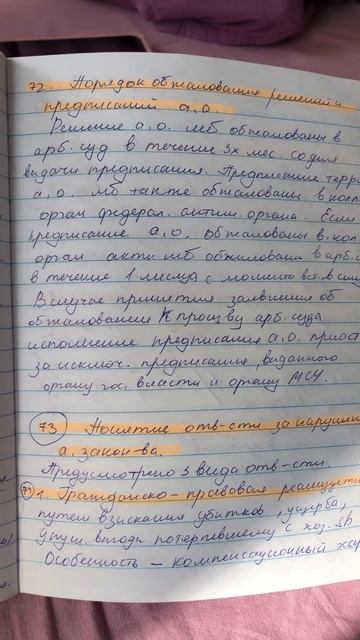 72. Порядок обжалования решений и
предписаний а.о.
Решение а.о. мб обжалованы в
арб. суд в течение 3х мес. со дня
выдачи предписания. Предписание терр
а.о. мб также обжалованы в колл
орган федерал. антим. органа. Если
предписание а.о. обжалованы в кол
орган акты мб обжалованы в арб. с
в течение 1 месяца с момента вст. в сил
В случае принятия заявления об
обжаловании к произ-ву арб. суда
исполнение предписания а.о. приост
за исключ. предписания, выданного
органу гос. власти и органу МСУ.
73 Понятие отв-сти за нарушен
а. закон-ва.
Предусмотрено 3 вида отв-сти.
74 1. Гражданско-правовая реализуется
путем взыскания убытков, ущерба,
упущ. выгоды потерпевшему с хоз.
Особенность – компенсационный хар